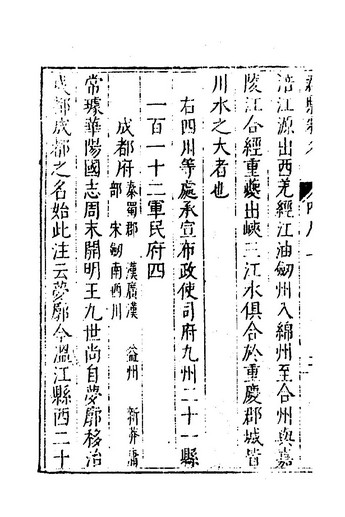 涪江源出西羌經江油劒州入綿州至合州與嘉
陵江合經重夔出峽三江水俱合於重慶郡城皆
川水之大者也
右四川等處承宣布政使司府九州二十一縣
一百一十二軍民府四
成都府 秦蜀郡 漢廣漢 益州 新莽庸
部 宋劒南西川
常璩華陽國志周末開明王九世尚自夢廓移治
成都成都之名始此注云夢廓今溫江縣西二十